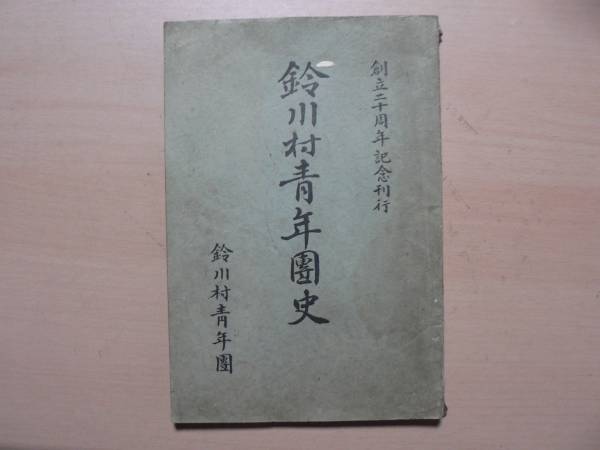 創立二十周年記念刊行
鈴川村青年團史
鈴川村青年團